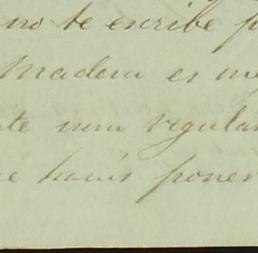 no te escribe p
Madera es me
te una regular
e haras poner